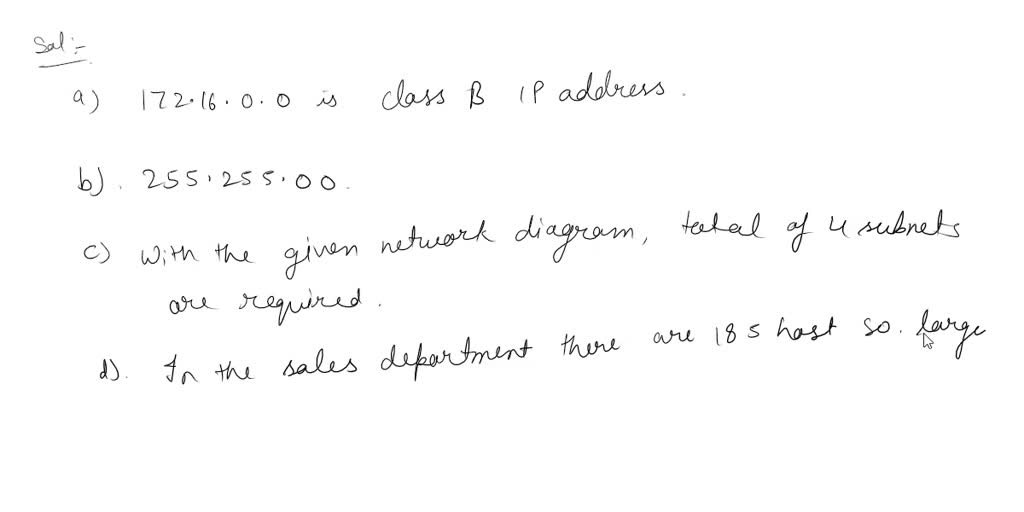 Sol :-
a) 172.16.0.0 is class B IP address.
b). 255.255.00.
c) With the given network diagram, total of 4 subnets
are required.
d). In the sales department there are 185 host so. large